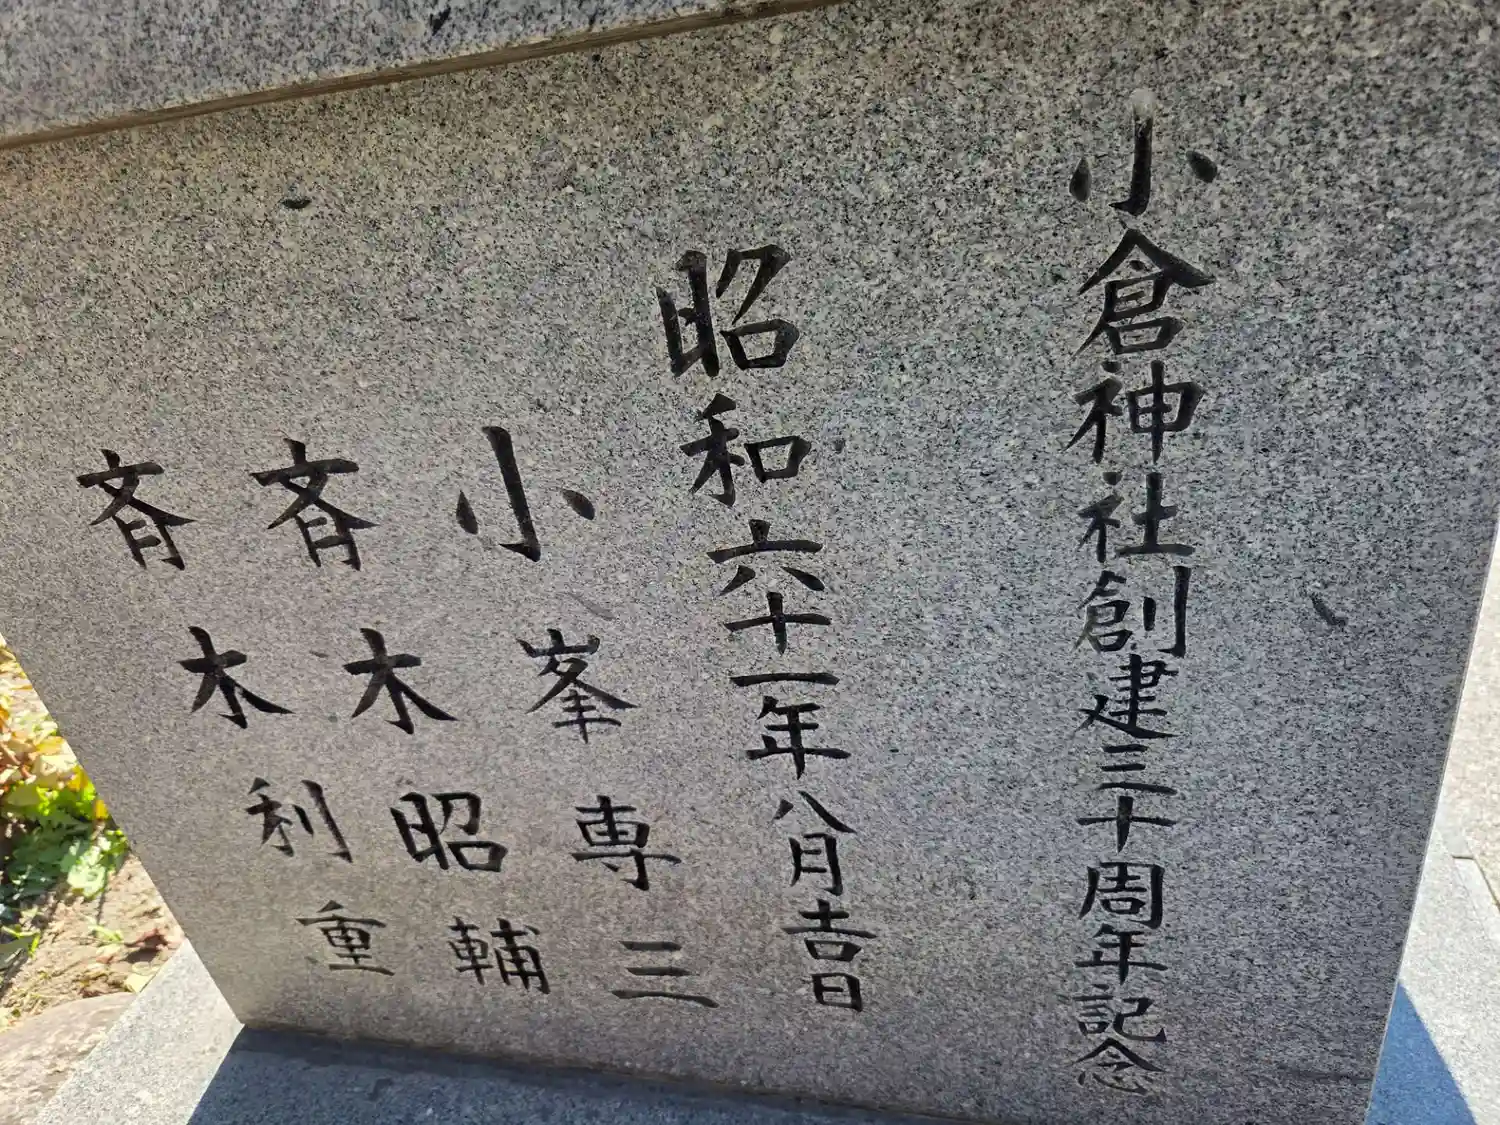 小倉神社創建三十周年記念
昭和六十一年八月吉日
小峯専三
斉木昭輔
斉木利重